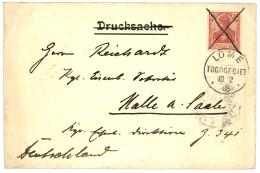 Drucksache.
Herrn Reichardt
Kgl. Eisenb.
Halle a. Saale
Kgl. Eisenb. Direktion Z. 341
Deutschland
LOME
TOGOGEBIET
10 2